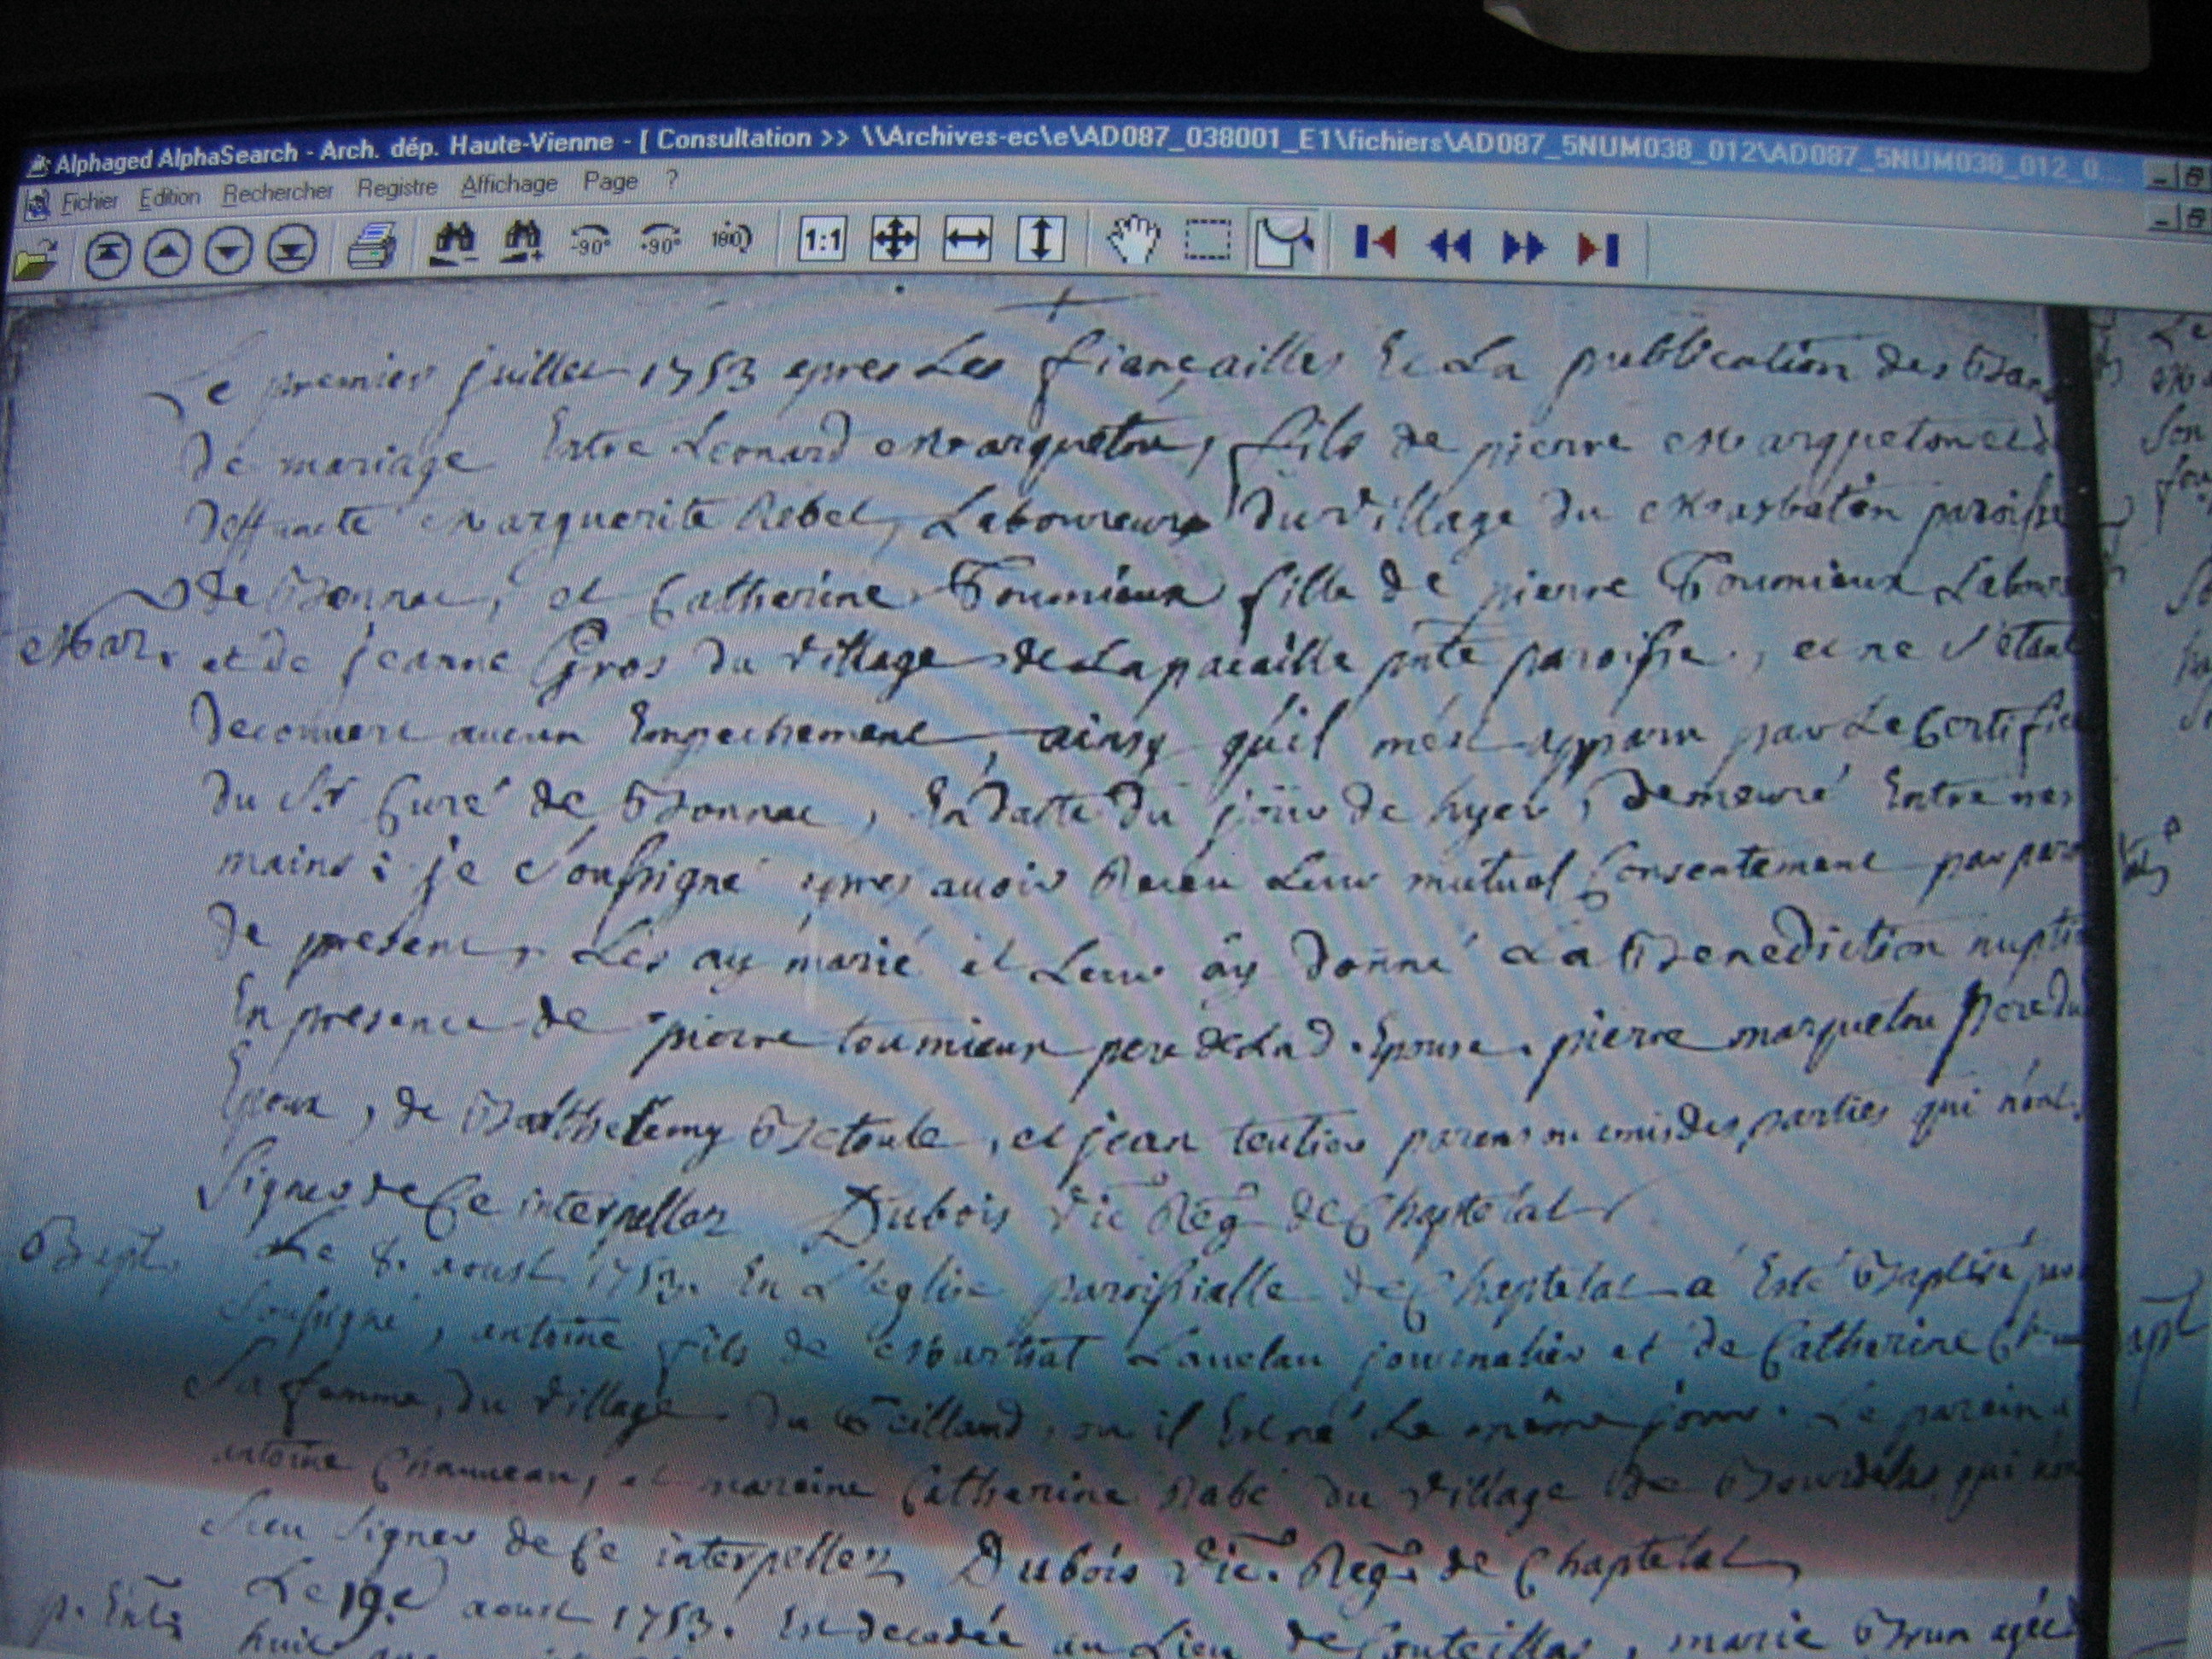 Alphaged AlphaSearch - Arch. dép. Haute-Vienne - [ Consultation >> \\Archives-ec\e\AD087_038001_E1\fichiers\AD087_5NUM038_012\AD087_5NUM038_012_0...
Fichier Edition Rechercher Registre Affichage Page ?
-90° +90° 180 1:1
Le premier juillet 1753 apres Les fiançailles Et La publication des Bans
De mariage Entre Leonard Marqueton, fils de pierre Marqueton et de
Deffunte Marguerite Rebel, Laboureurs Du Village du Masbatin paroisse
de Bonnac, et Catherine Toumieux fille de pierre Toumieux Labour
Mar. et de jeanne Gros du village de Lapacaille pnte paroisse, et ne s'etant
Decouvert aucun Empechement, ainsy qu'il m'est apparu par Le Certific
du Sr Curé de Bonnac, En datte du jour de hyer, Demeuré Entre nos
mains: je soussigné apres avoir Receu Leur mutuel Consentement par paro
de present, Les ay marié et Leur ay Donné La Benediction nuptia
En presence de pierre toumieux pere de Lad. Epouse. pierre marqueton Pere du
Epoux, de Barthelemy Betoule, et jean teutier parens ou amis des parties qui n'ont
Signer de Ce interpellez Dubois Vic Reg de Chaptelat
Bapt. Le 8. aoust 1753. En L'eglise paroissialle de Chaptelat a Esté Baptisé par
Soussigné, antoine fils de Martial Lauclau journalier et de Catherine
Sa femme, du village du Teilland, ou il Est né Le même jour. Le parein a
antoine Chauveau, et mareine Catherine Rabé du village de Bourdelas qui n'on
Sceu Signer de Ce interpellez Dubois Vic. Reg. de Chaptelat
p. Ents Le 19.e aoust 1753. Est decedée au Lieu de Couteillas, marie Brun agée d
huit